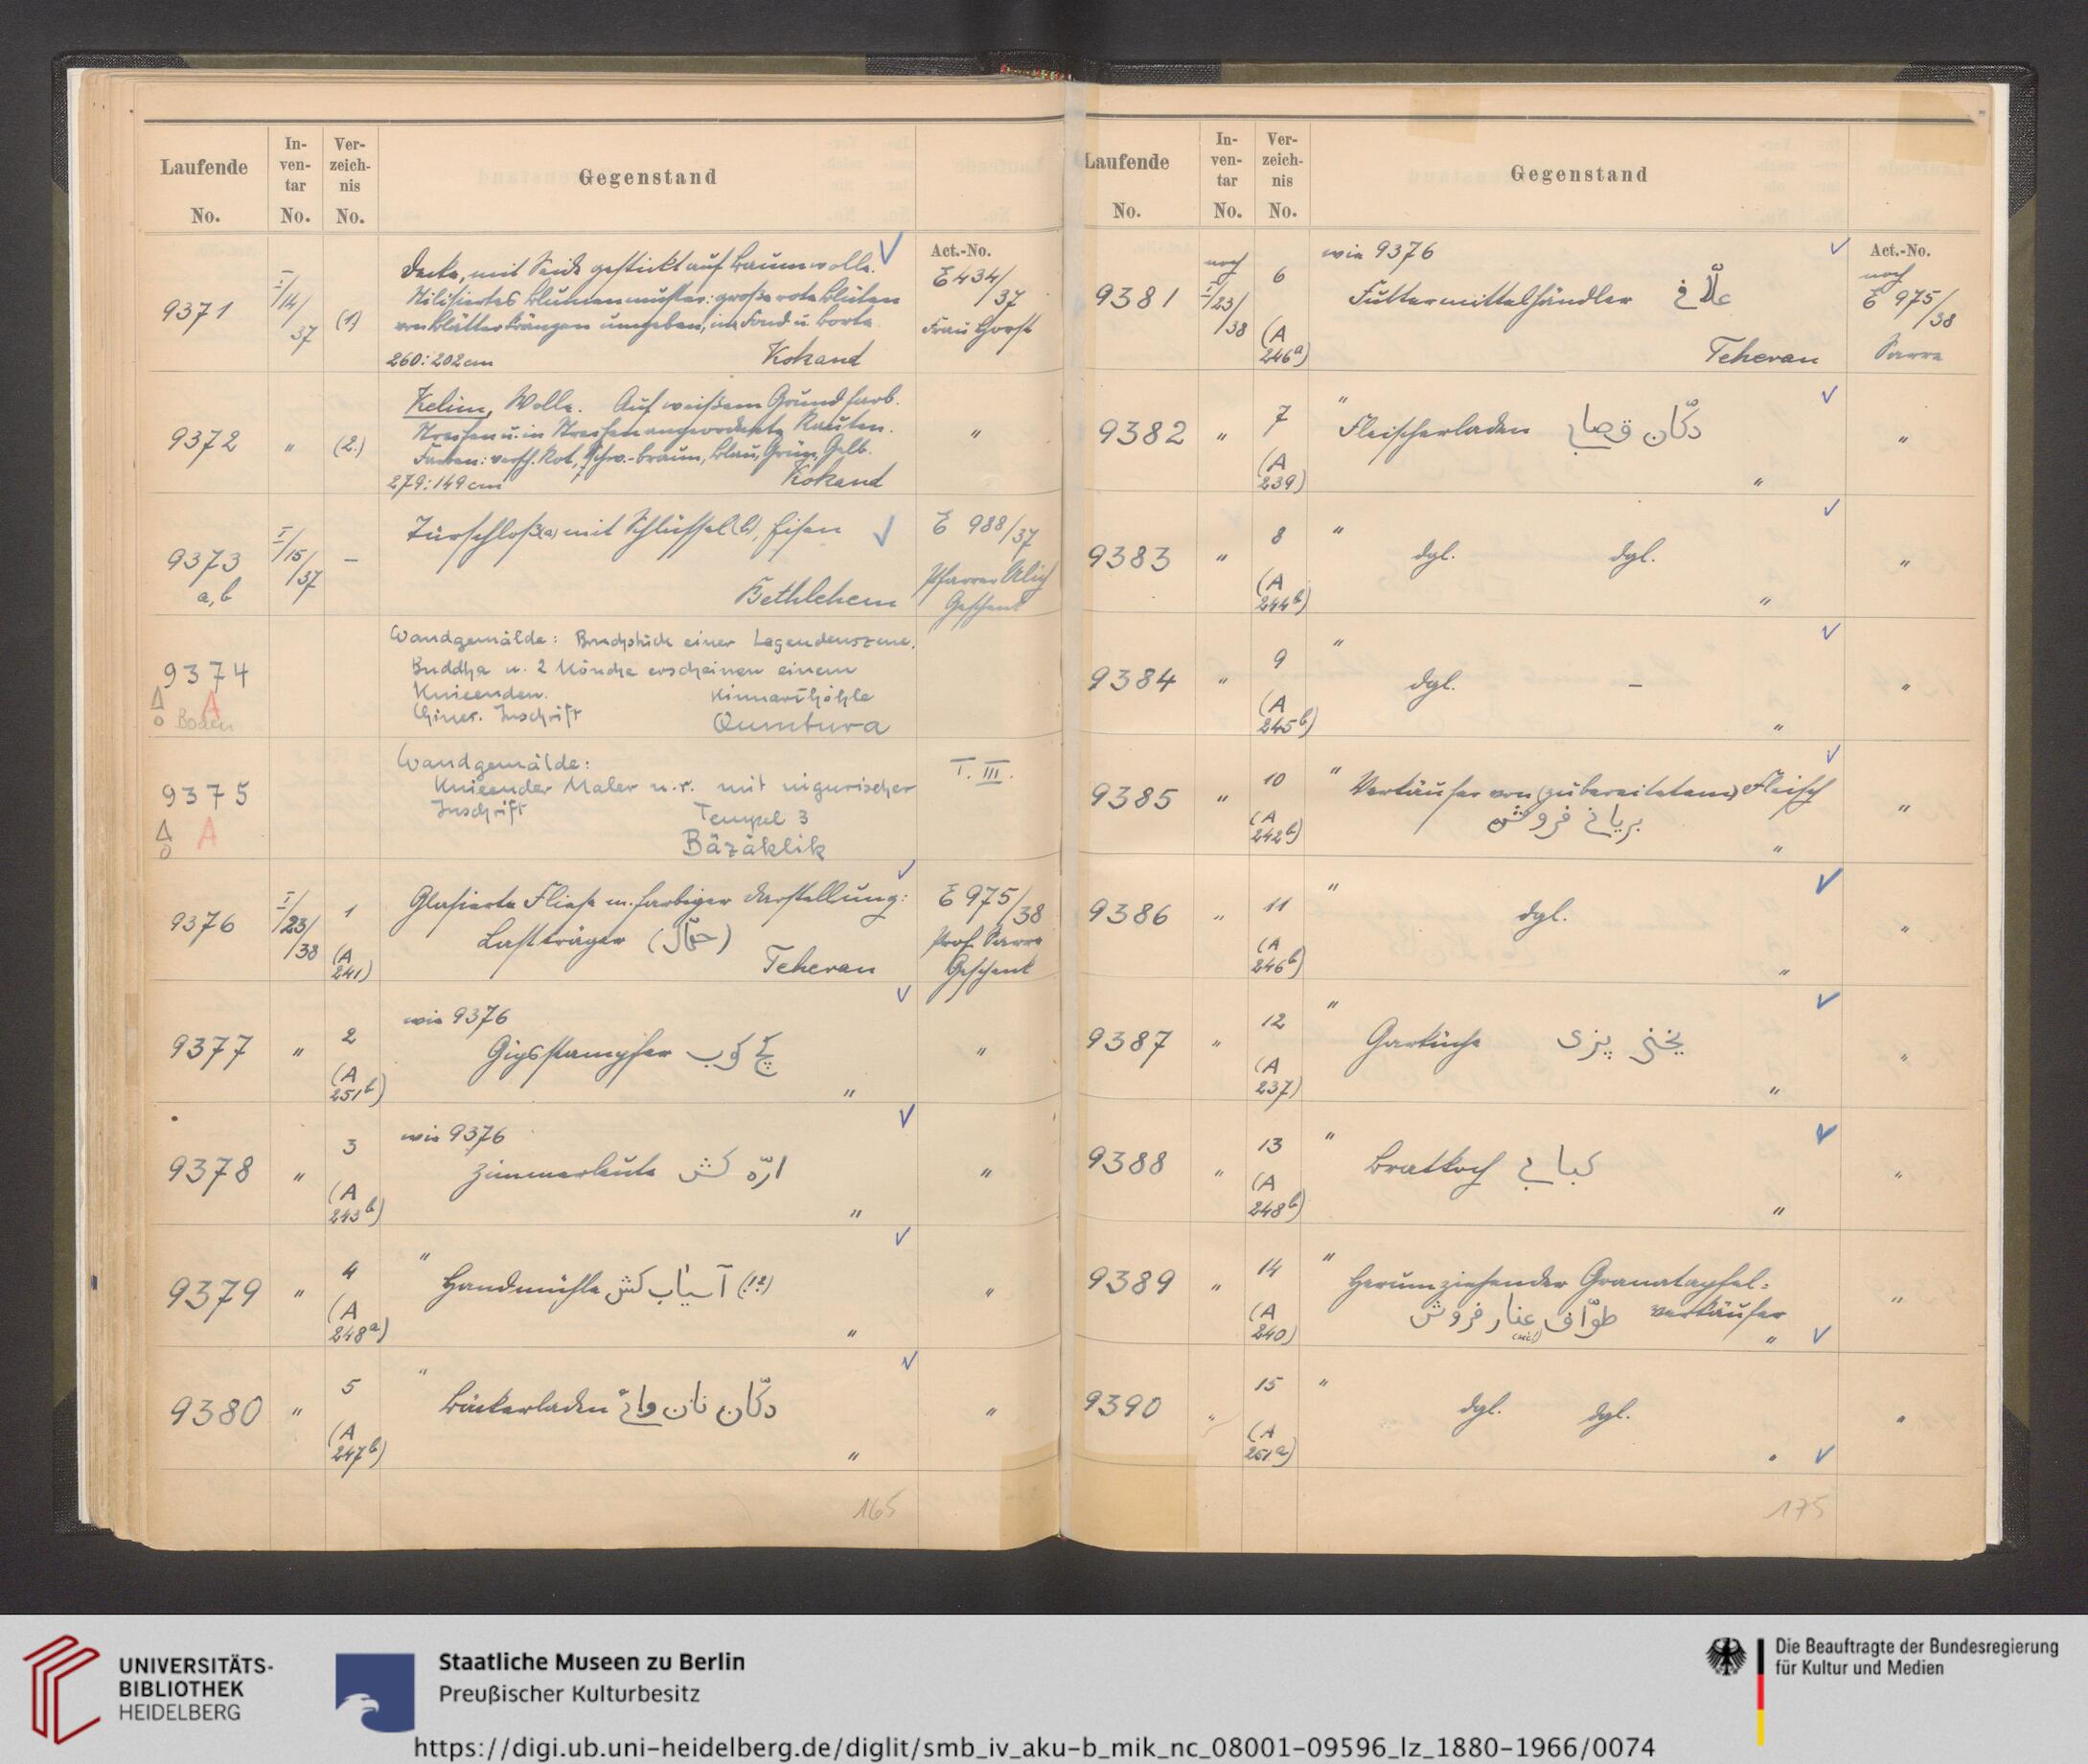 Laufende
No.
In-
ven-
tar
No.
Ver-
zeich-
nis
No.
Gegenstand
Act.-No.
9371
I/14/37
(1)
Decke, mit Seide gestickt auf Baumwolle.
Stilisiertes Blumenmuster: große rote Blüten
von Blätterkränzen umgeben, im Fond u. Borte
260:202cm
Kokand
E 434/37
Frau Horst
9372
"
(2.)
Kelim, Wolle. Auf weißem Grund farb.
Streifen u. in Streifen angeordnete Rauten.
Farben: versch. Rot, Schw.-braun, Blau, Grün, Gelb.
279:149cm
Kokand
"
9373
a,b
I/15/37
–
Türschloß(a) mit Schlüssel(b), Eisen
Bethlehem
E 988/37
Pfarrer
Geschenk
9374
A
Boden
Wandgemälde: Bruchstück einer Legendenszene.
Buddha u. 2 Mönche erscheinen einem
Knieenden.
Kinnarihöhle
Chines. Inschrift
Qumtura
9375
A
Wandgemälde:
Knieender Maler n.r. mit uigurischer
Inschrift
Tempel 3
Bäzäklik
T. III.
9376
I/23/38
1
(A
241)
Glasierte Fliese m. farbiger Darstellung:
Lastträger (حمّال)
Teheran
E 975/38
Prof. Sarre
Geschenk
9377
"
2
(A
251b)
wie 9376
Gipsstampfer گچ کوب
"
"
9378
"
3
(A
243b)
wie 9376
Zimmerleute ارّه کش
"
"
9379
"
4
(A
248a)
"
Handmühle آسیاب کش (!?)
"
"
9380
"
5
(A
247b)
"
Bäckerladen دکّان نان وائی
"
"
165
Laufende
No.
In-
ven-
tar
No.
Ver-
zeich-
nis
No.
Gegenstand
Act.-No.
9381
noch
I/23/38
6
(A
246a)
wie 9376
Futtermittelhändler علّافی
Teheran
noch
E 975/38
Sarre
9382
"
7
(A
239)
"
Fleischerladen دکّان قصابی
"
"
9383
"
8
(A
244b)
"
dgl. dgl.
"
"
9384
"
9
(A
245b)
"
dgl. –
"
"
9385
"
10
(A
242b)
" Verkäufer von (zubereitetem) Fleisch
بریانی فروش
"
"
9386
"
11
(A
246b)
"
dgl.
"
"
9387
"
12
(A
237)
"
Garküche یخنی پزی
"
"
9388
"
13
(A
248b)
"
Bratkoch کبابی
"
"
9389
"
14
(A
240)
"
Herumziehender Granatapfel-
verkäufer طوّاف عنار فروش
(sic!)
"
"
9390
"
15
(A
251a)
"
dgl. dgl.
"
"
175
UNIVERSITÄTS-
BIBLIOTHEK
HEIDELBERG
Staatliche Museen zu Berlin
Preußischer Kulturbesitz
Die Beauftragte der Bundesregierung
für Kultur und Medien
https://digi.ub.uni-heidelberg.de/diglit/smb_iv_aku-b_mik_nc_08001-09596_lz_1880-1966/0074